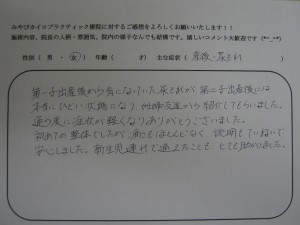 みやびカイロプラクティック療院に対するご感想をよろしくお願いいたします!!
施術内容、院長の人柄・雰囲気、院内の様子なんでも結構です。嬉しいコメント大歓迎です
性別(男・女)年齢( 才) 主な症状(産後・尿もれ)
第一子出産後から気になっていた尿もれが第二子出産後には
本当にひどい状態になり、妊婦友達から紹介してもらいました。
通う度に症状が軽くなりありがとうございました。
初めての整体でしたが、痛さもほとんどなく、説明もていねいで
安心しました。新生児連れで通えたことも、とても助かりました。